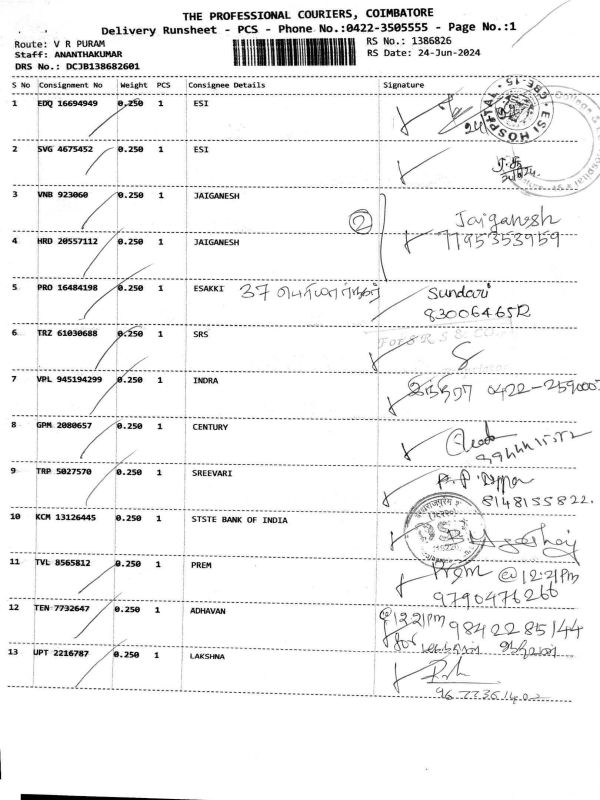 THE PROFESSIONAL COURIERS, COIMBATORE
Delivery Runsheet - PCS - Phone No.:0422-3505555 - Page No.:1
Route: V R PURAM RS No.: 1386826
Staff: ANANTHAKUMAR RS Date: 24-Jun-2024
DRS No.: DCJB138682601
S No Consignment No Weight PCS Consignee Details Signature
1 EDQ 16694949 0.250 1 ESI
ESI HOSPITAL
2 SVG 4675452 0.250 1 ESI
3 VNB 923060 0.250 1 JAIGANESH
2 Jaiganesh
7795353959
4 HRD 20557112 0.250 1 JAIGANESH
5 PRO 16484198 0.250 1 ESAKKI 37 Sundari
8300646512
6 TRZ 61030688 0.250 1 SRS
For S R S & CO
7 VPL 945194299 0.250 1 INDRA
இந்திரா 0422-2590007
8 GPM 2080657 0.250 1 CENTURY
9 TRP 5027570 0.250 1 SREEVARI
8148155822.
10 KCM 13126445 0.250 1 STSTE BANK OF INDIA
11 TVL 8565812 0.250 1 PREM Prem @12:21pm
9790476266
12 TEN 7732647 0.250 1 ADHAVAN @12:21pm 9842285144
for
13 UPT 2216787 0.250 1 LAKSHNA